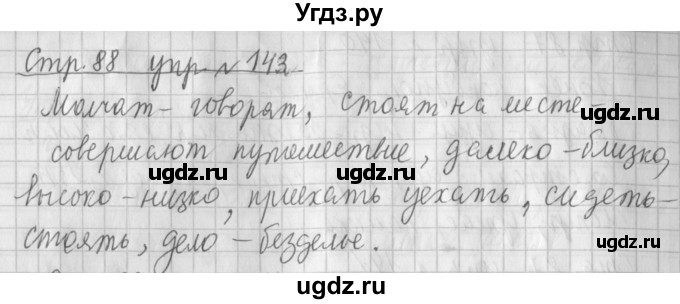 Угдз.ру
Стр. 88 упр. № 143
Молчат - говорят, стоят на месте -
совершают путешествие, далеко - близко,
высоко - низко, приехать уехать, сидеть -
стоять, дело - безделье.
ugdz.ru
ugdz.ru
ugdz.ru
ugdz.ru
ugdz.ru
ugdz.ru
ugdz.ru